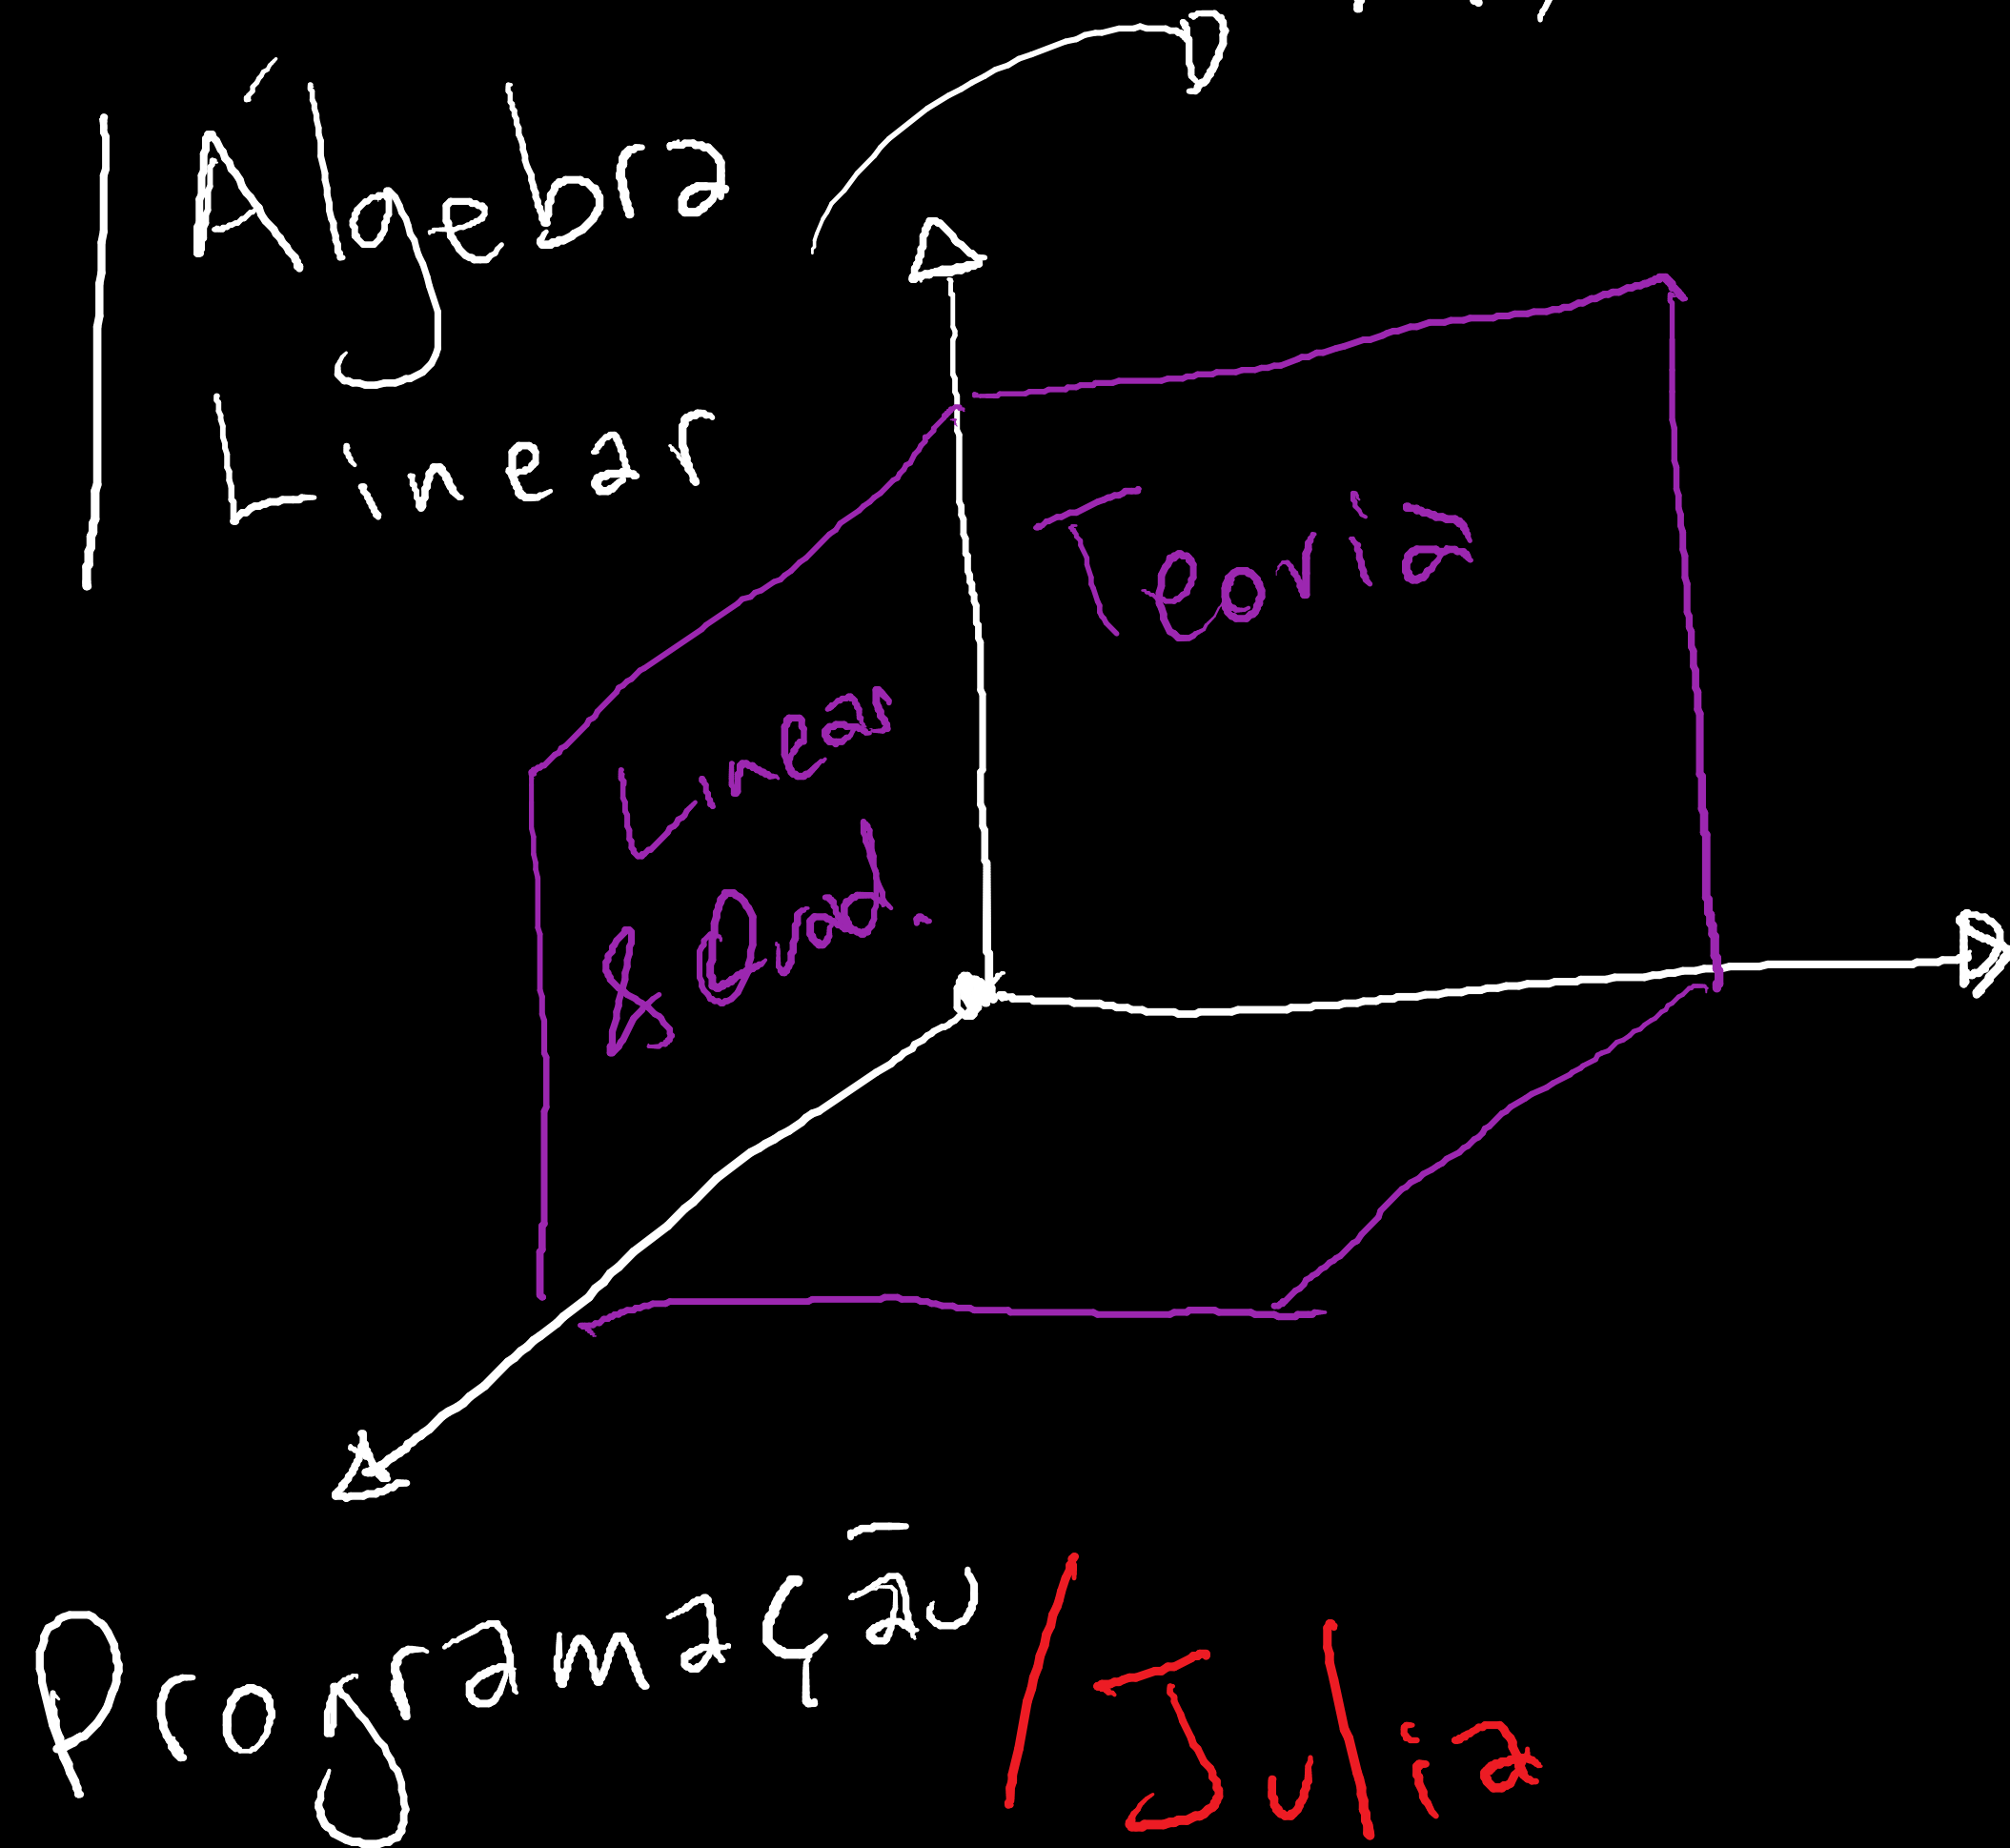 Álgebra
Linear
Teoria
Linear
& Quad.
Programação / Julia